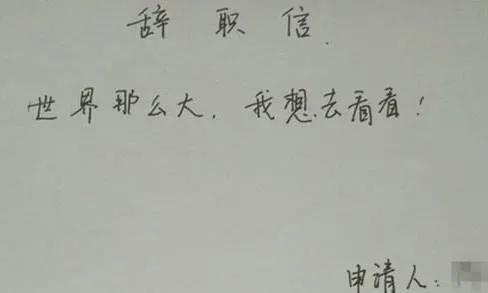 辞职信.
世界那么大,我想去看看!
申请人: